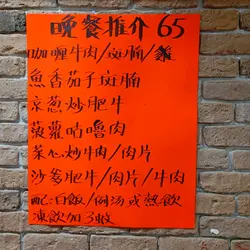 晚餐推介 65
咖喱牛肉/斑腩/雞
魚香茄子斑腩
京葱炒肥牛
菠蘿咕嚕肉
菜心炒牛肉/肉片
沙爹肥牛/肉片/牛肉
配:白飯/例湯或熱飲
凍飲加3